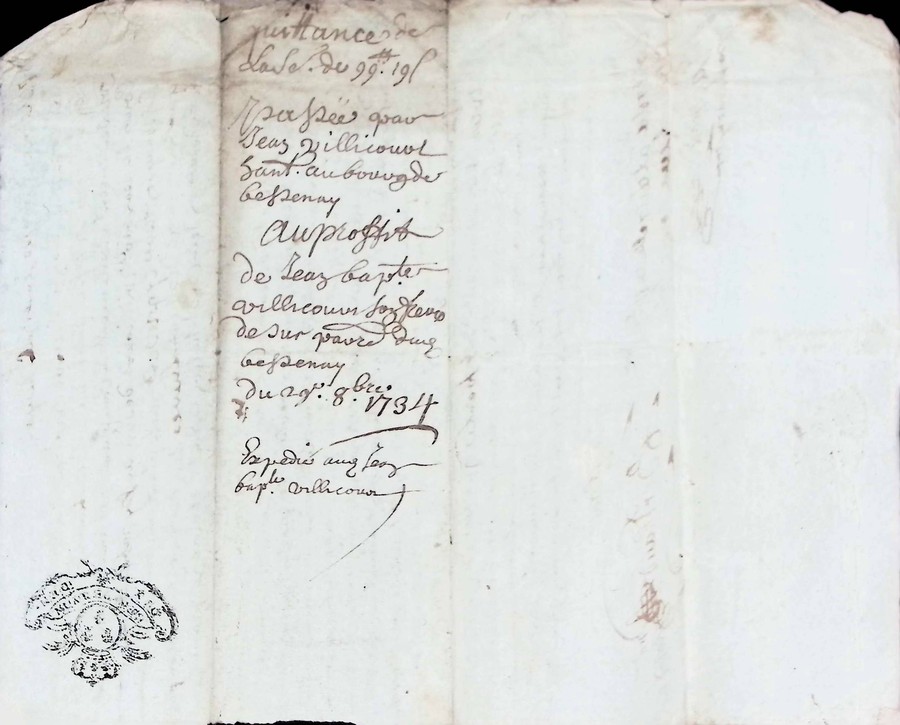 quittance de
La Se. de 99 tt. 19 s
passée par
Jean Villicourt
hant. au bourg de
bessenay
au proffit
de Jean bapte
villicourt son frere
de sur pavré dud
bessenay
du 29e. 8bre. 1734
Expedié aud Jean
bapte. villicourt